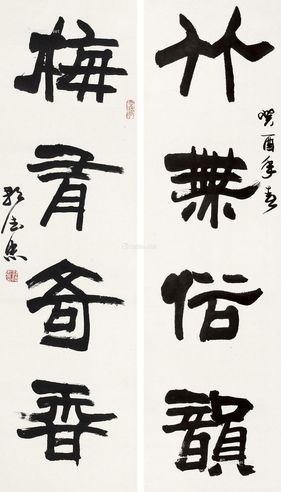 竹無俗韻
癸酉年春
梅有奇香